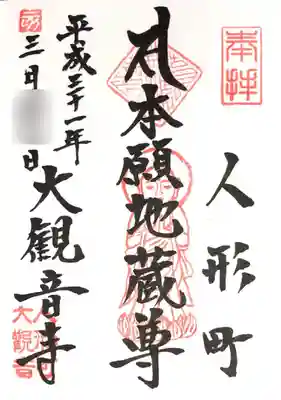 奉拝
人形町
本願地蔵尊
平成三十一年
三月 日
大觀音寺